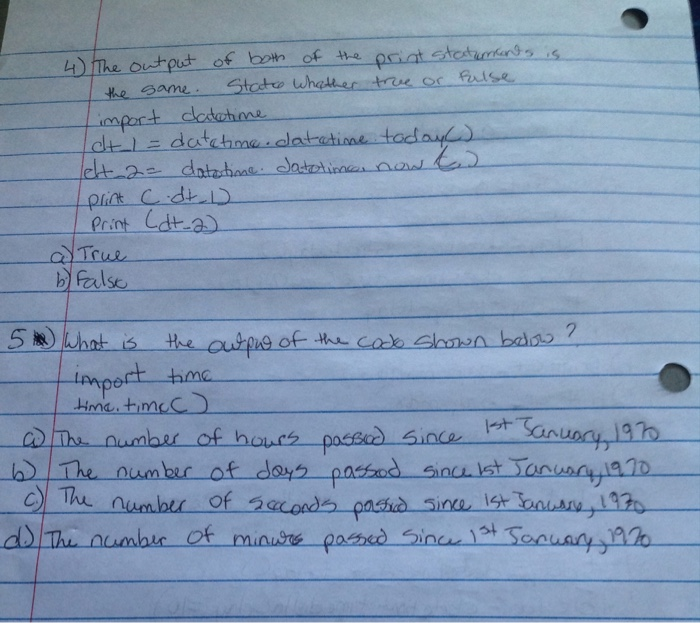 4) The output of both of the print statements is
the same. State whether true or False
import datetime
dt_1 = datetime.datetime.today()
dt_2 = datetime.datetime.now()
print (dt_1)
print (dt_2)
a) True
b) False
5) What is the output of the code shown below?
import time
time.time()
a) The number of hours passed since 1st January, 1970
b) The number of days passed since 1st January, 1970
c) The number of seconds passed since 1st January, 1970
d) The number of minutes passed since 1st January, 1970